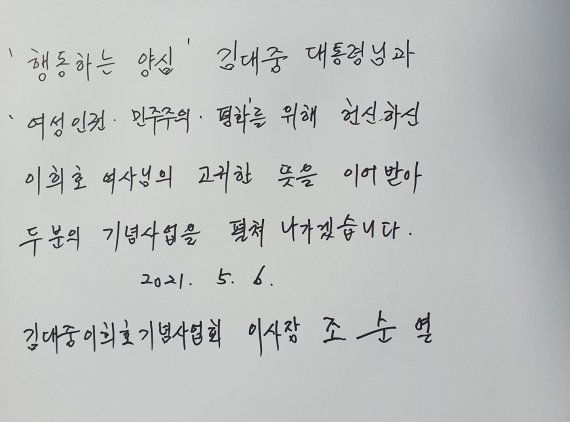 '행동하는 양심' 김대중 대통령님과
'여성인권·민주주의·평화'를 위해 헌신하신
이희호 여사님의 고귀한 뜻을 이어받아
두분의 기념사업을 펼쳐 나가겠습니다.
2021. 5. 6.
김대중이희호기념사업회 이사장 조순열